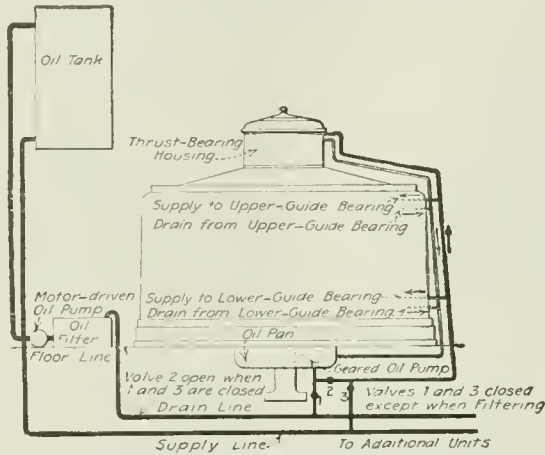 Oil Tank
Thrust-Bearing
Housing
Supply to Upper-Guide Bearing
Drain from Upper-Guide Bearing
Motor-driven
Oil Pump
Oil
Filter
Floor Line
Supply to Lower-Guide Bearing
Drain from Lower-Guide Bearing
Oil Pan
Geared Oil Pump
Valve 2 open when
1 and 3 are closed
2
1
3
Valves 1 and 3 closed
except when Filtering
Drain Line
Supply Line
To Additional Units